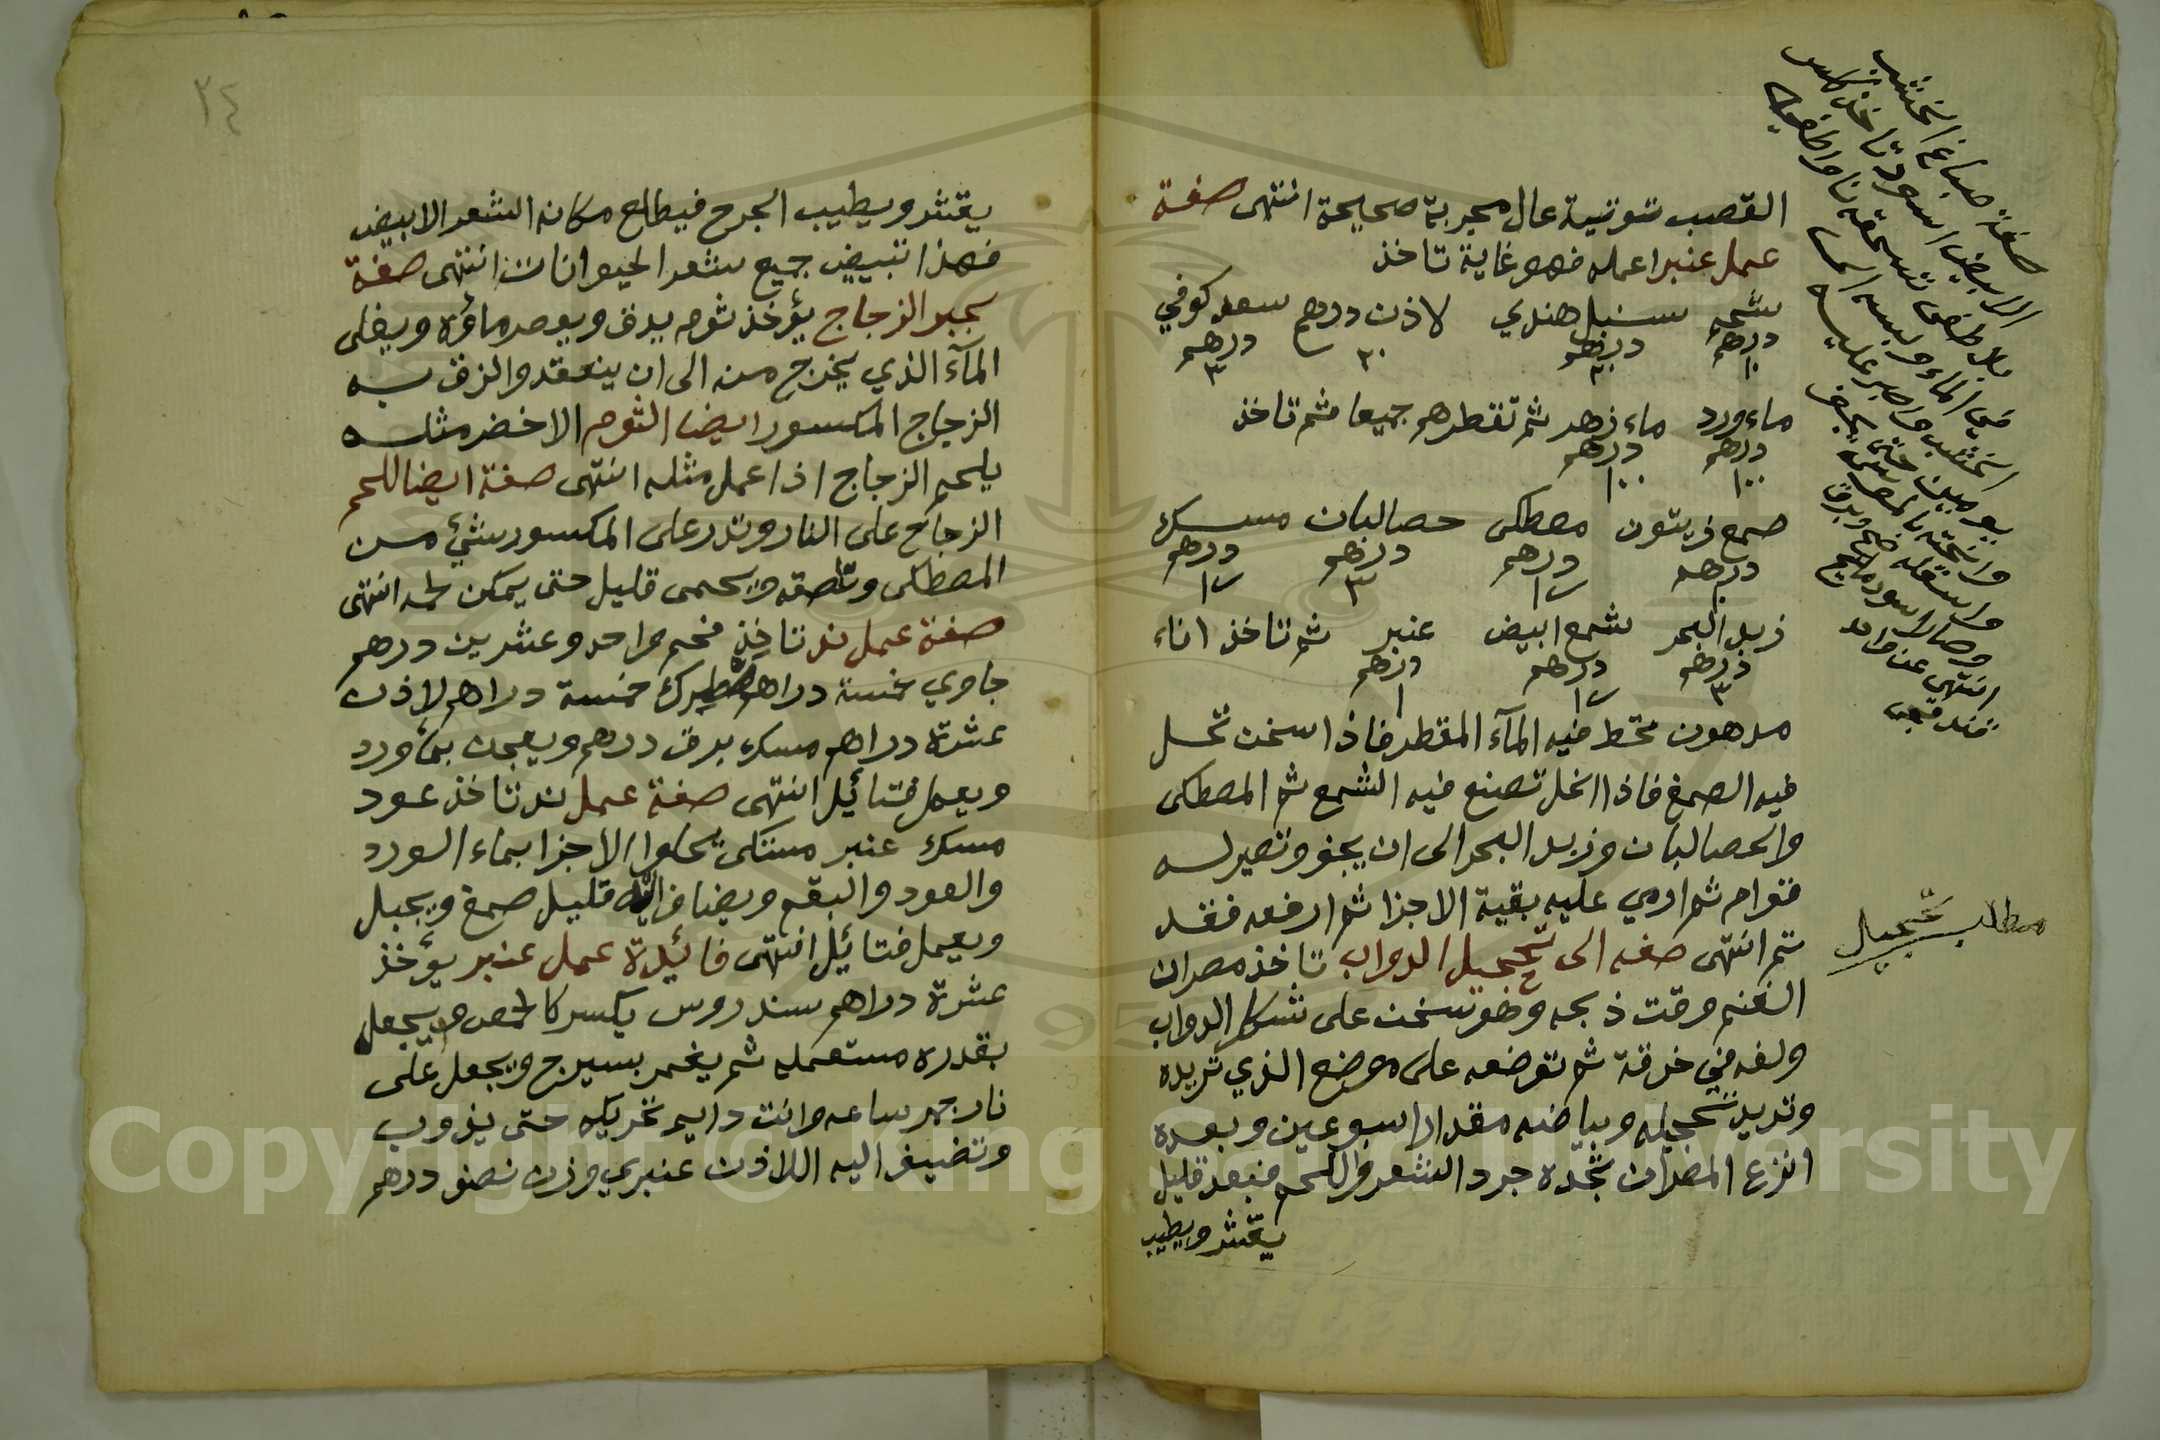 القصب تنوتية عال مجربة صحيحة انتهى صفة
عمل عنبر اعمله فهو غاية تاخذ
شحم سنبل هندي لاذن درهم سعد كوفي
درهم درهم ٣٠ درهم
١٠ ٣٠ ٣
ماء ورد ماء زهر ثم تقطرهم جميعا ثم تاخذ
درهم درهم
١٠٠ ١٠٠
صمغ زيتون مصطكى حصالبان مسك
درهم درهم درهم درهم
زبد البحر شمع ابيض عنبر ثم تاخذ اناء
درهم درهم درهم
٣ ١
مدهون تحط فيه المآء المقطر فاذا سخن تحل
فيه الصمغ فاذا انحل تصنع فيه الشمع ثم المصطكى
والحصالبان وزبد البحر الى ان يجف وتصير له
قوام ثم ارمي عليه بقية الاجزا ثم ارفعه فقد
تم انتهى صفه الى تحجيل الدواب تاخذ مصران
الغنم وقت ذبحه وهو سخن على شكل الدواب
ولفه في خرقة ثم توضعه على موضع الذي تريده
وتريد تحجيله وبياضه مقدار اسبوعين وبعده
انزع المصران تجده جرد الشعر واللحم فبعد قليل
يقشر ويطيب
صفة صباغ الخشب
الابيض اسود تاخذ كلس
بلا طفى تسحقه ناعما واطفيه
في الماء ولبسه الى
الخشب واصبر عليه
يومين حتى يجف
مطلب تحجيل
٢٤
يقشر ويطيب الجرح فيطالع مكانه الشعر الابيض
فهذا تبييض جميع شعر الحيوانات انتهى صفة
بجبر الزجاج يؤخذ ثوم يدق ويعصر ماؤه ويغلى
المآء الذي يخرج منه الى ان ينعقد والزق به
الزجاج المكسور ايضا الثوم الاخضر مثله
يلحم الزجاج اذا عمل مثله انتهى صفة ايضا للحم
الزجاج على النار وتدر على المكسور شئ من
المصطكى وتلصقه ويحمى قليل حتى يمكن لحمه انتهى
صفة عمل ند تاخذ فحم واحد وعشرين درهم
جاوي خمسة دراهم اصطرك خمسة دراهم لاذن
عشرة دراهم مسك بدق درهم ويعجن بمآورد
ويعمل فتائل انتهى صفة عمل ند تاخذ عود
مسك عنبر مستكى يحلوا الاجزا بماء الورد
والعود والبقم ويضاف اليه قليل صمغ ويجبل
ويعمل فتائل انتهى فائدة عمل عنبر يؤخذ
عشرة دراهم سندروس يكسر كالحمص ويجعل
بقدره مستعمله ثم يغمر بسيرج ويجعل على
نار جمر ساعه وانت دايم تحريكه حتى يذوب
وتضيف اليه اللاذن عنبري وزن نصف درهم
Copyright © King Saud University